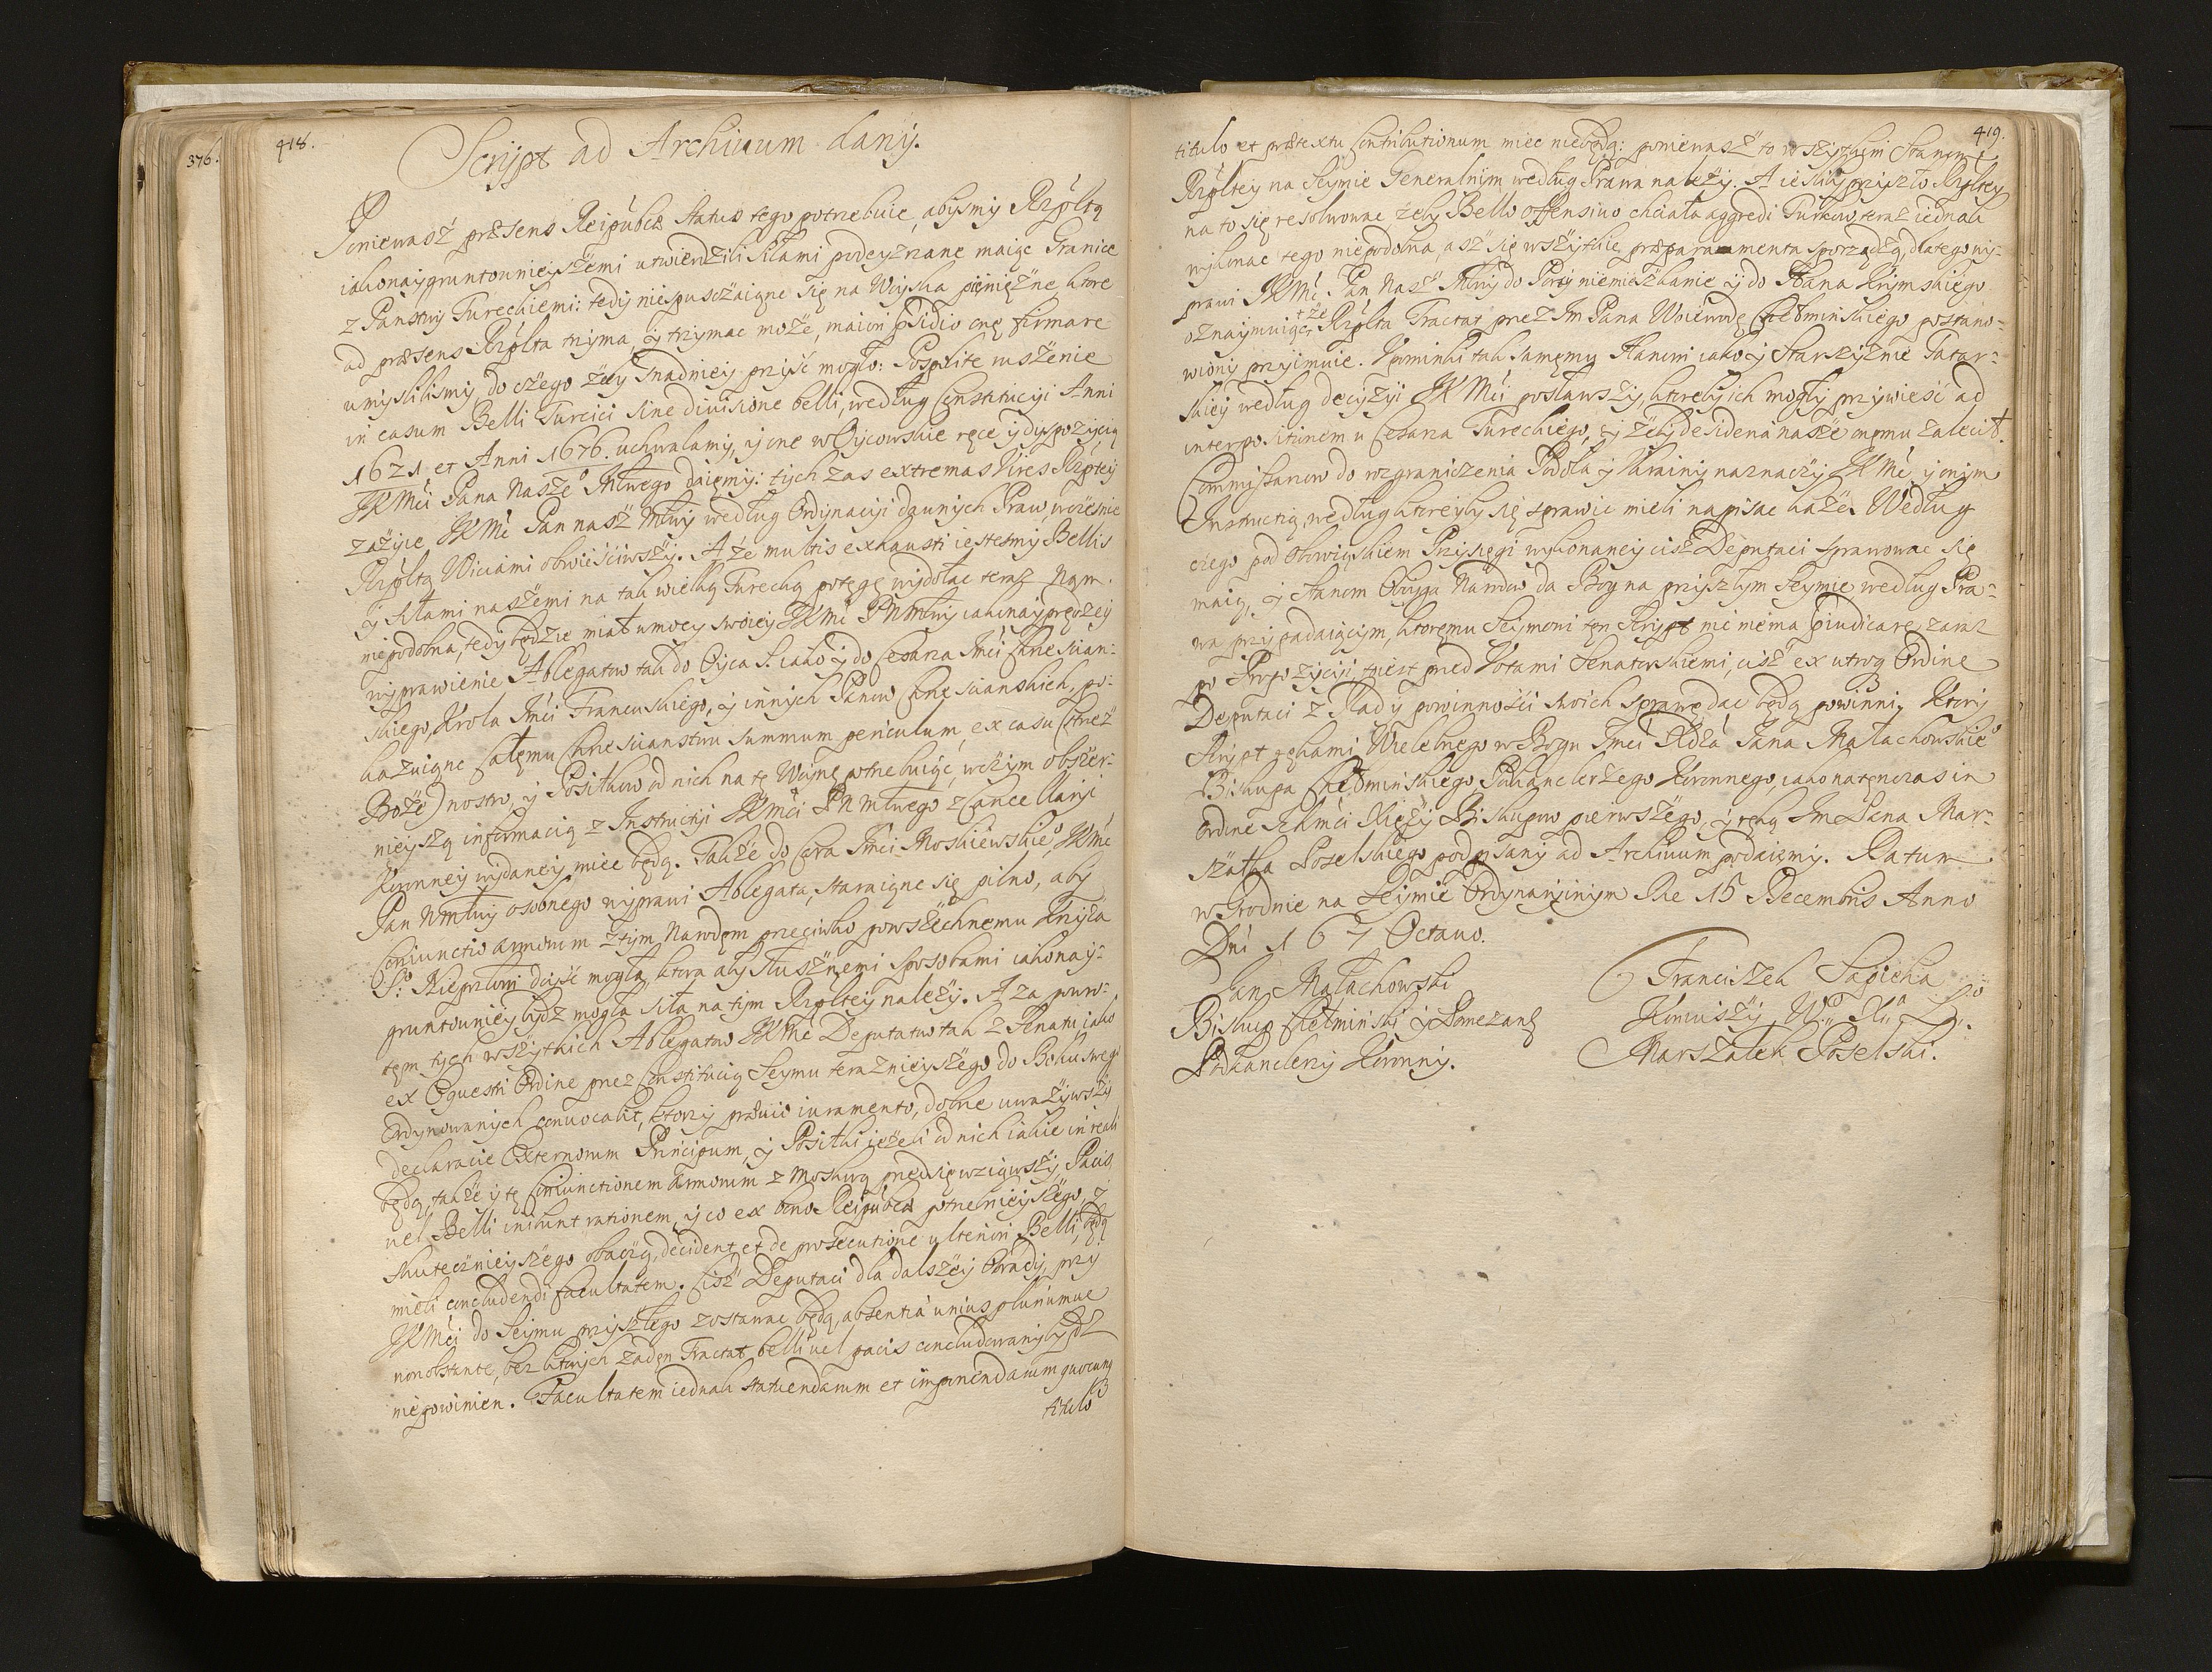 376.
418.
Script ad Archiuum dany.
Poniewasz præsens Reipublicæ Status tego potrzebuie, abysmy Rzpltą
iakonaygruntownieyszemi utwierdzili siłami podeyzrzane maiąc Granice
z Panstwy Tureckiemi: tedy niespusczaiąc się na Woyska pieniężne, ktore
ad præsens Rzplta trzyma, y trzymac może, maiori p̃sidio onę firmare
umyslilismy do czego żeby snadniey przyść mogło: Pospolite ruszenie
in casum Belli Turcici sine divisione belli, według Constitucyi Anni
1621 et Anni 1676. uchwalamy, y one w Oycowskie ręce y dyspozycyą
JKMći Pana Nasze° Młwego daięmy: tych zas extremas vires Rzptey
zażyie JKMć Pan nasz Młwy według Ordynacyi dawnych Praw, wcześnie
Rzpltą Wiciami obwieściwszy. A że multis exhausti iestesmy Bellis
y siłami naszemi na tak wielką Turecką potęgę wydołac teraz nam
niepodobna, tedy będzie miał umocy swoiey JKMć PNMłwy iakonayprędzey
wyprawienie Ablegatow tak do Oyca S. iako y do Cesarza Jmći Chrescian-
skiego, Krola Jmći Francuskiego, y innych Panow Chrescianskich, po-
kazuiąc całęmu Chrescianstwu summum periculum, ex casu (strzeż
Boże) nostro, y Posiłkow od nich na tę Woynę potrzebuiąc, wczym obszer-
nieyszą informacią z Instructyi JKMći PNMłwego z Cancellaryi
Koronney wydaney miec będą. Także do Cara Jmći Moskiewskie° JKMć
Pan NMłwy osobnego wyprawi Ablegata, staraiąc się pilno, aby
Coniunctio armorum z tym Narodęm przeciwko powszechnemu Krzyża
S° Nieprzyiac. dojść mogła, ktora aby słusznemi sposobami iakonay-
gruntowniey bydz mogła siła na tym Rzpltey należy. A za powro-
tęm tych wszytkich Ablegatow JKMć Deputatow tak z Senatu iako
ex Equestri Ordine przez Constitucią Seymu teraznieyszego do Boku swego
Ordynowanych convocabit, ktorzy prævio iuramento, dobrze uważywszy
declaracie Externorum Principum, y Posiłki ieżeli od nich iakie in reali
będą, także y tę Coniunctionem armorum z Moskwą przedsięwziąwszy, Pacis
uel Belli inibunt rationem, y co ex bono Reipublicæ potrzebnieyszego, y
skutecznieyszego obaczą, decident, et de prosecutione ulteriori Belli, będą
mieli concludendi facultatem. Cisz Deputaci dla dalszey Porady przy
JKMći do Seymu przyszłego zostawac będą, absentiâ unius pluriumue
non obstante, bez ktorych żadęn Tractat belli uel pacis concludowany bydz
niepowinien. Facultatem iednak statuendarum et imponendarum quocunq₃
titulo
419.
titulo et prætextu Contributionum miec niebędą: poniewasz to wszytkim Stanom
Rzpltey na Seymie Generalnim według Prawa należy. A ieśliby przyszło Rzpltey
na to się resolwowac żeby Bello offensiuo chciała aggredi Turkow, teraz iednak
wykonac tego niepodobna, asz się wszytkie præparamenta sporządzą, dlatego wy-
prawi JKMć Pan Nasz Młwy do Porty niemieszkanie y do Hana Krymskiego
oznaymuiąc że Rzplta Tractat przez Jm Pana Woiewodę Chełminskiego postano-
wiony przyimuie. Upominki tak samęmu Hanowi iako y Starszyznie Tatar-
skiey według decyzyi JKMći posławszy, ktoreby ich mogły przywieść ad
interpositionem u Cesarza Tureckiego, y żeby desideria nasze onęmu zalecił.
Commissarzow do rozgraniczenia Podola y Ukrainy naznaczy JKMć, y onym
Instructią, według ktoreyby się sprawic mieli napisac każe. Według
czego pod obowiąskiem Przysięgi wykonaney cisz Deputaci sprawowac się
maią, y Stanom Oboyga Narodow da Bog na przyszłym Seymie, według Pra-
wa przypadaiącym, ktoręmu Seymowi tęn Skrypt nic niema p̃iudicare, zaraz
po Propozyciy, to iest przed Votami Senatorskiemi, cisz ex utroq₃ Ordine
Deputaci z Rady powinności swoich sprawę dac będą powinni. Ktory
Skrypt rękami Wielebnego w Bogu Jmći Xdza Jana Małachowskie°
Biskupa Chełminskiego, Podkanclerzego Koronnego, iako natęnczas in
ordine Ichmći Xięży Biskupow pierwszego, y ręką Jm Pana Mar-
szałka Poselskiego podpisany ad Archiuum podaięmy. Datum
w Grodnie na Seymie Ordynaryinym Die 15 Decembris Anno
Dńi 167 Octauo.
Jan Małachowski
Biskup Chełminski y Pomezans
Podkanclerzy Koronny.
Franciszek Sapieha
Koniuszy W° Xa Lo
Marszałek Poselski.